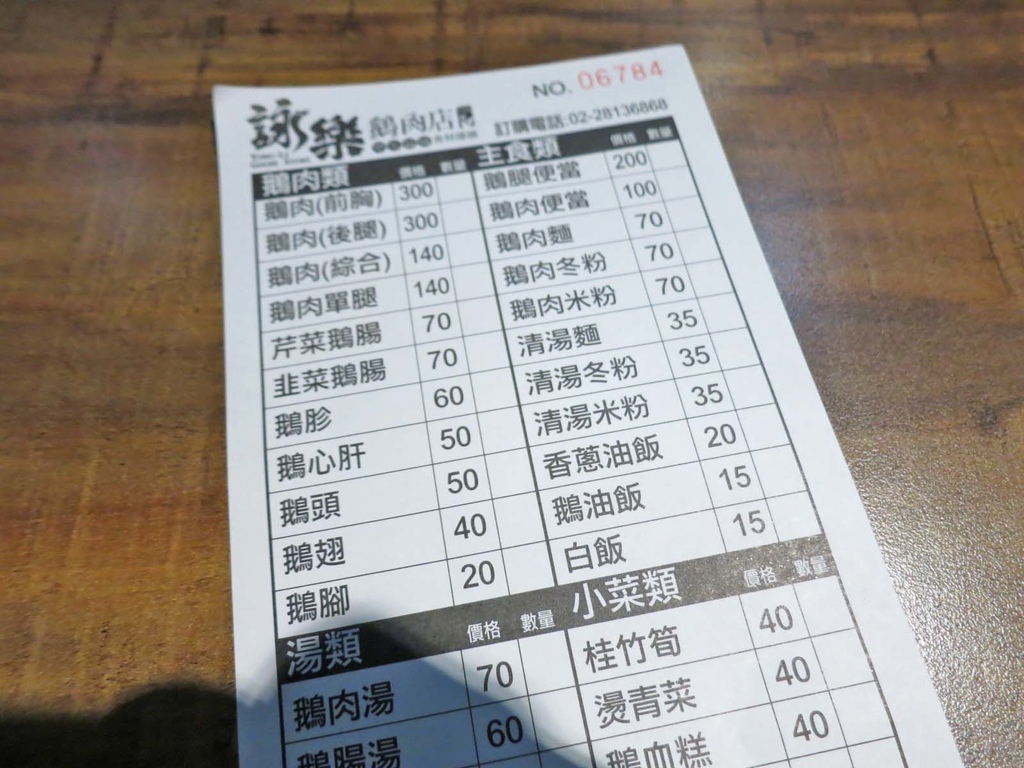 NO. 06784
詠樂 鵝肉店
訂購電話:02-28136868
鵝肉類 價格 數量
鵝肉(前胸) 300
鵝肉(後腿) 300
鵝肉(綜合) 140
鵝肉單腿 140
芹菜鵝腸 70
韭菜鵝腸 70
鵝胗 60
鵝心肝 50
鵝頭 50
鵝翅 40
鵝腳 20
主食類 價格 數量
鵝腿便當 200
鵝肉便當 100
鵝肉麵 70
鵝肉冬粉 70
鵝肉米粉 70
清湯麵 35
清湯冬粉 35
清湯米粉 35
香蔥油飯 20
鵝油飯 15
白飯 15
湯類 價格 數量
鵝肉湯 70
鵝腸湯 60
小菜類 價格 數量
桂竹筍 40
燙青菜 40
鵝血糕 40